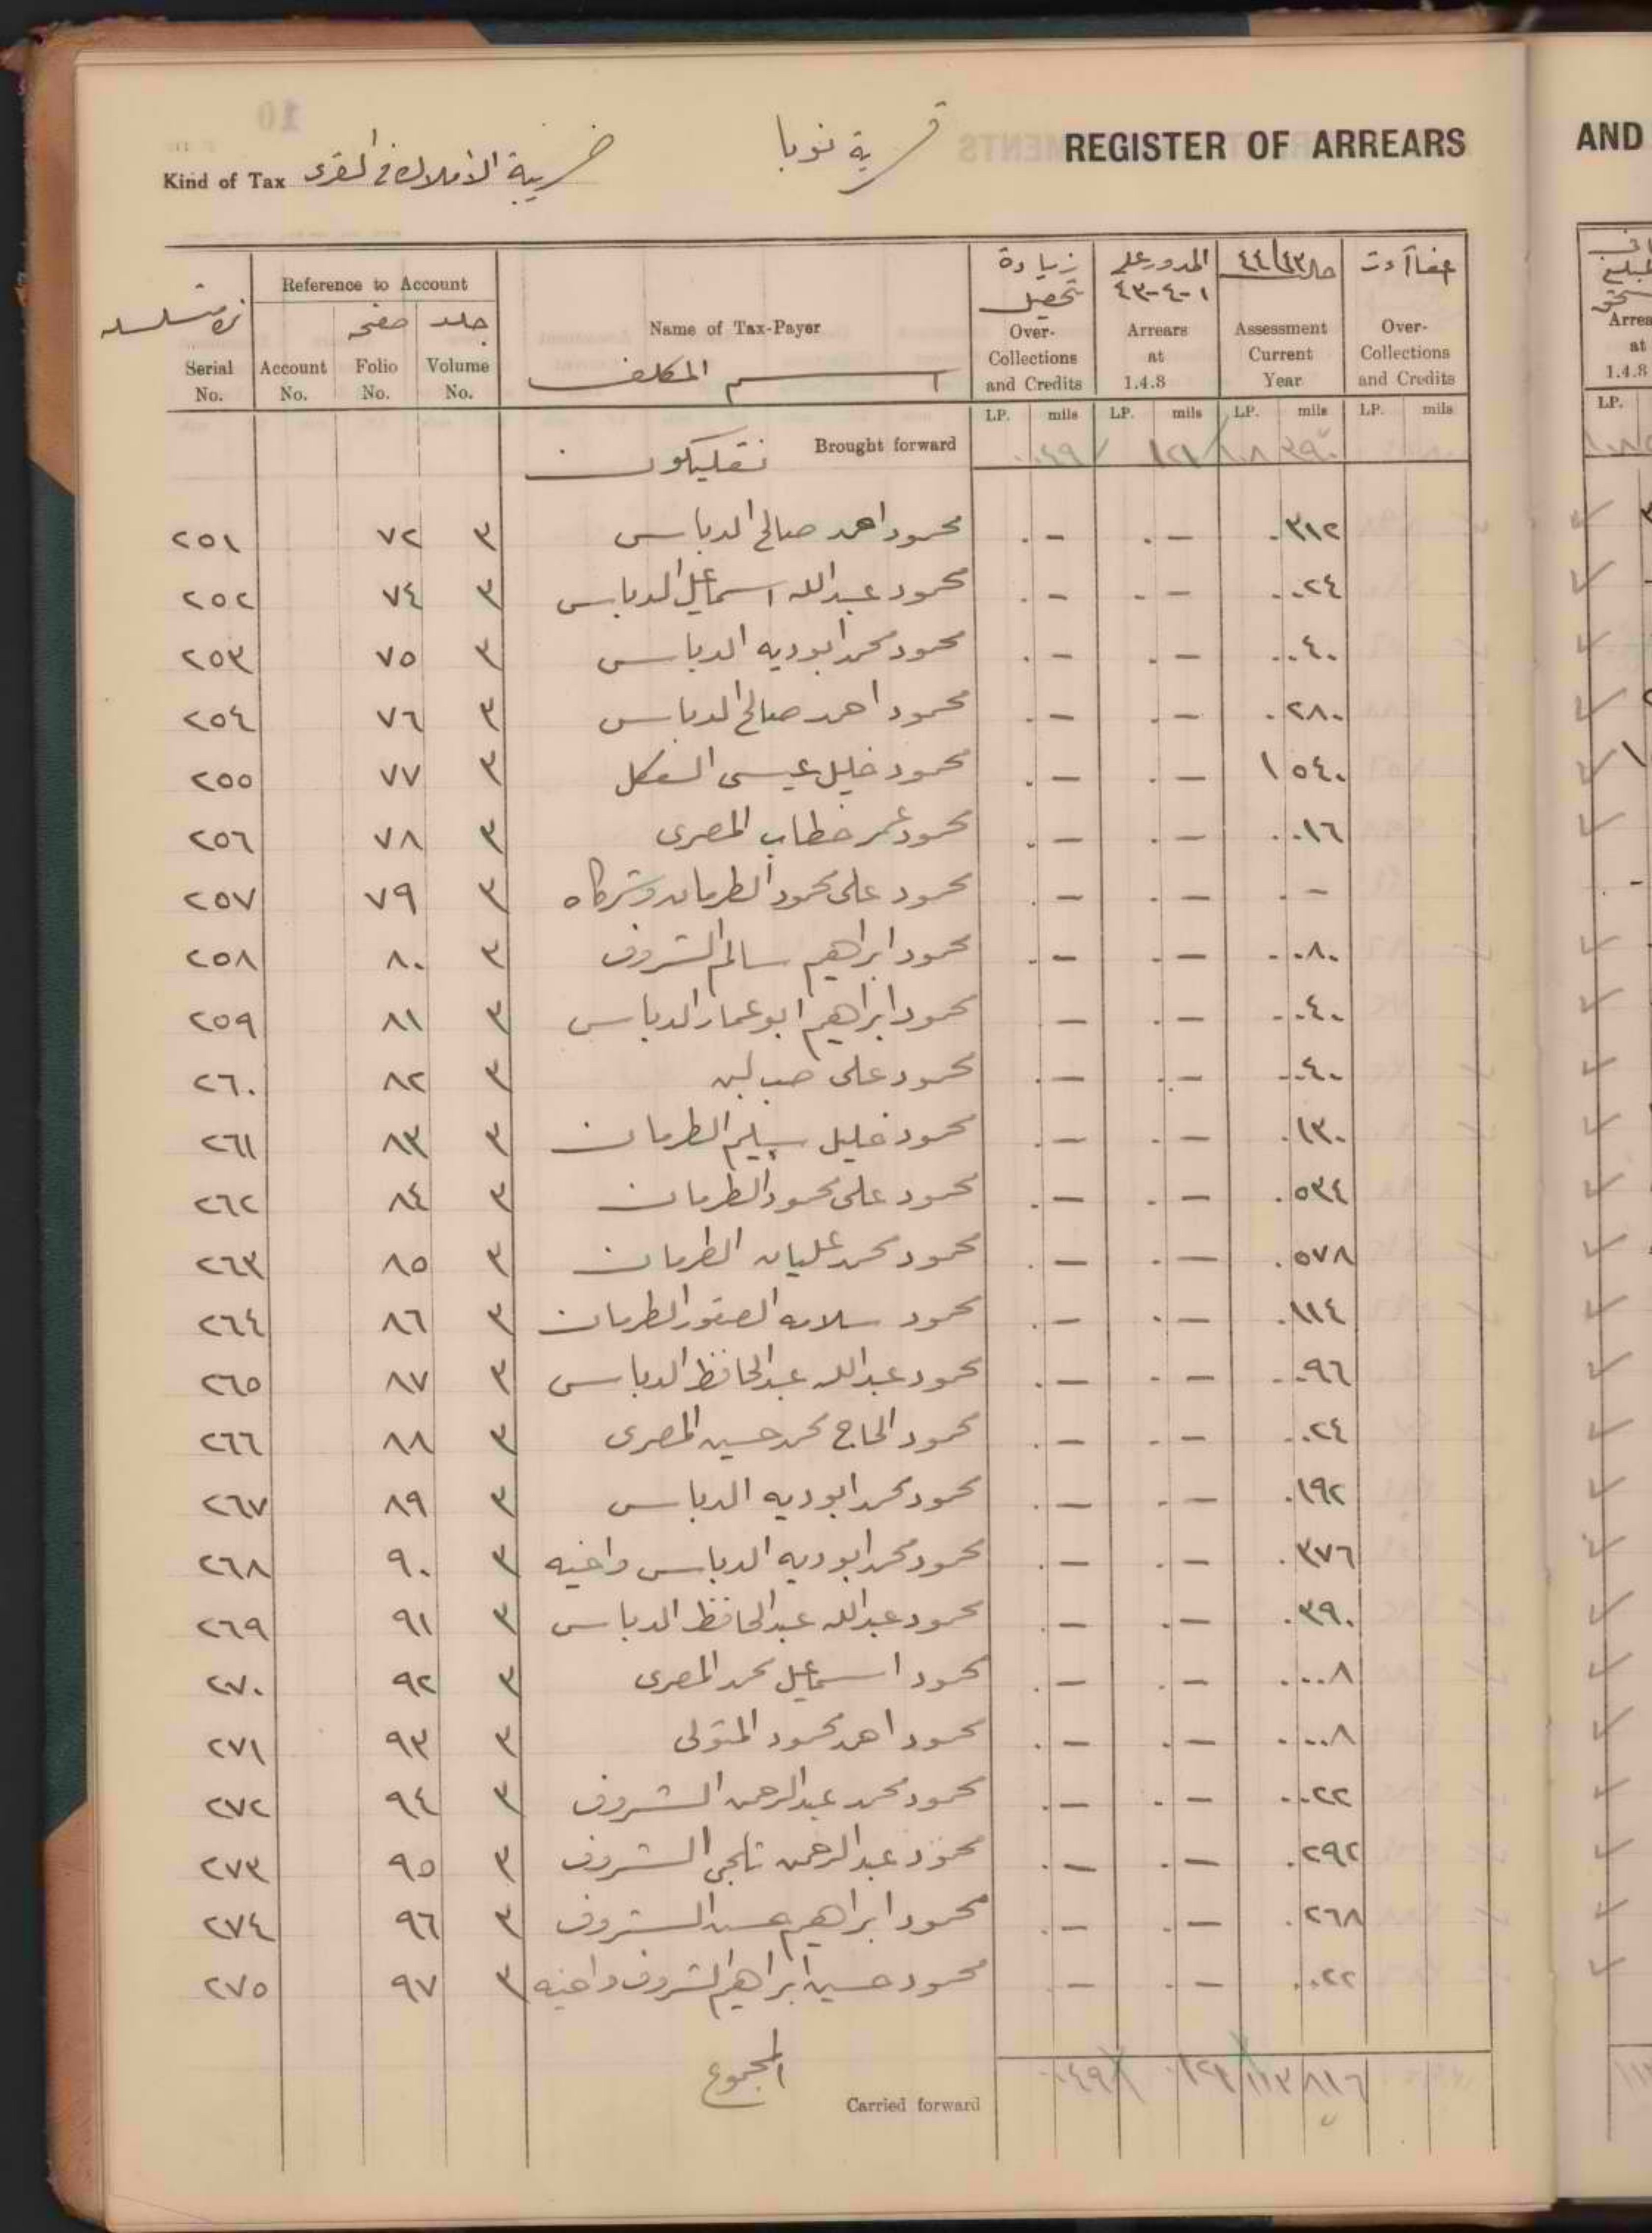 REGISTER OF ARREARS
قرية نوبا
Kind of Tax ضريبة الأملاك في القرى
AND
نمرة متسلسله
Reference to Account
صفحه جلد
زيادة تحصيل
المدور على ١-٤-٤٣
٤٤/٤٣
Serial No. Account No. Folio No. Volume No.
Name of Tax-Payer
اسم المكلف
Over-Collections and Credits
Arrears at 1.4.8
Assessment Current Year
Over-Collections and Credits
LP. mils LP. mils LP. mils LP. mils
Brought forward
٢٥١ ٧٢ ٣ محمود احمد صالح الدباس . - . - . ٣١٢
٢٥٢ ٧٤ ٣ محمود عبدالله اسماعيل الدباس . - . - . .٢٤
٢٥٣ ٧٥ ٣ محمود محمد ابوديه الدباس . - . - . .٤٠
٢٥٤ ٧٦ ٣ محمود احمد صالح الدباس . - . - . ٢٨٠
٢٥٥ ٧٧ ٣ محمود خليل عيسى . - . - ١ ٥٤٠
٢٥٦ ٧٨ ٣ محمود عمر خطاب المصرى . - . - . .١٦
٢٥٧ ٧٩ ٣ محمود على محمود الطرمان وشركاه . - . - . -
٢٥٨ ٨٠ ٣ محمود ابراهيم سالم الشروف . - . - . .٨٠
٢٥٩ ٨١ ٣ محمود ابراهيم ابوعمار الدباس - . - . .٤٠
٢٦٠ ٨٢ ٣ محمود على حب لبن . - . - . .٤٠
٢٦١ ٨٣ ٣ محمود خليل سليم الطرمان . - . - . ١٣٠
٢٦٢ ٨٤ ٣ محمود على محمود الطرمان . - . - . ٥٣٤
٢٦٣ ٨٥ ٣ محمود محمد عليان الطرمان . - . - . ٥٧٨
٢٦٤ ٨٦ ٣ محمود سلامه الصقور الطرمان . - . - . ١١٤
٢٦٥ ٨٧ ٣ محمود عبدالله عبدالحافظ الدباس . - . - . .٩٦
٢٦٦ ٨٨ ٣ محمود الحاج محمد حسين المصرى . - . - . .٢٤
٢٦٧ ٨٩ ٣ محمود محمد ابوديه الدباس . - . - . ١٩٢
٢٦٨ ٩٠ ٣ محمود محمد ابوديه الدباس واخيه . - . - . ٣٧٦
٢٦٩ ٩١ ٣ محمود عبدالله عبدالحافظ الدباس . - . - . ٣٩٠
٢٧٠ ٩٢ ٣ محمود اسماعيل محمد المصرى . - . - . ..٨
٢٧١ ٩٣ ٣ محمود احمد محمود المتولى . - . - . ..٨
٢٧٢ ٩٤ ٣ محمود محمد عبدالرحمن الشروف . - . - . .٢٢
٢٧٣ ٩٥ ٣ محمود عبدالرحمن الشروف . - . - . ٢٩٢
٢٧٤ ٩٦ ٣ محمود ابراهيم الشروف . - . - . ٢٦٨
٢٧٥ ٩٧ ٣ محمود حسين ابراهيم الشروف واخيه - . - . .٢٢
المجموع
Carried forward ١١٣ ٨١٦
Arrea
at
1.4.8
LP.